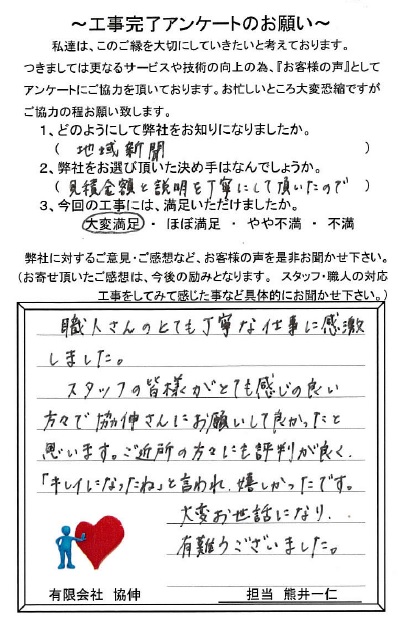 ～工事完了アンケートのお願い～
私達は、このご縁を大切にしていきたいと考えております。
つきましては更なるサービスや技術の向上の為、『お客様の声』として
アンケートにご協力を頂いております。お忙しいところ大変恐縮ですが
ご協力の程お願い致します。
1、どのようにして弊社をお知りになりましたか。
（ 地域新聞 ）
2、弊社をお選び頂いた決め手はなんでしょうか。
（ 見積金額と説明を丁寧にして頂いたので ）
3、今回の工事には、満足いただけましたか。
大変満足 ・ ほぼ満足 ・ やや不満 ・ 不満
弊社に対するご意見・ご感想など、お客様の声を是非お聞かせ下さい。
（お寄せ頂いたご感想は、今後の励みとなります。 スタッフ・職人の対応
工事をしてみて感じた事など具体的にお聞かせ下さい。）
職人さんのとても丁寧な仕事に感激
しました。
スタッフの皆様がとても感じの良い
方々で協伸さんにお願いして良かったと
思います。ご近所の方々にも評判が良く、
「キレイになったね」と言われ、嬉しかったです。
大変お世話になり、
有難うございました。
有限会社 協伸 担当 熊井一仁